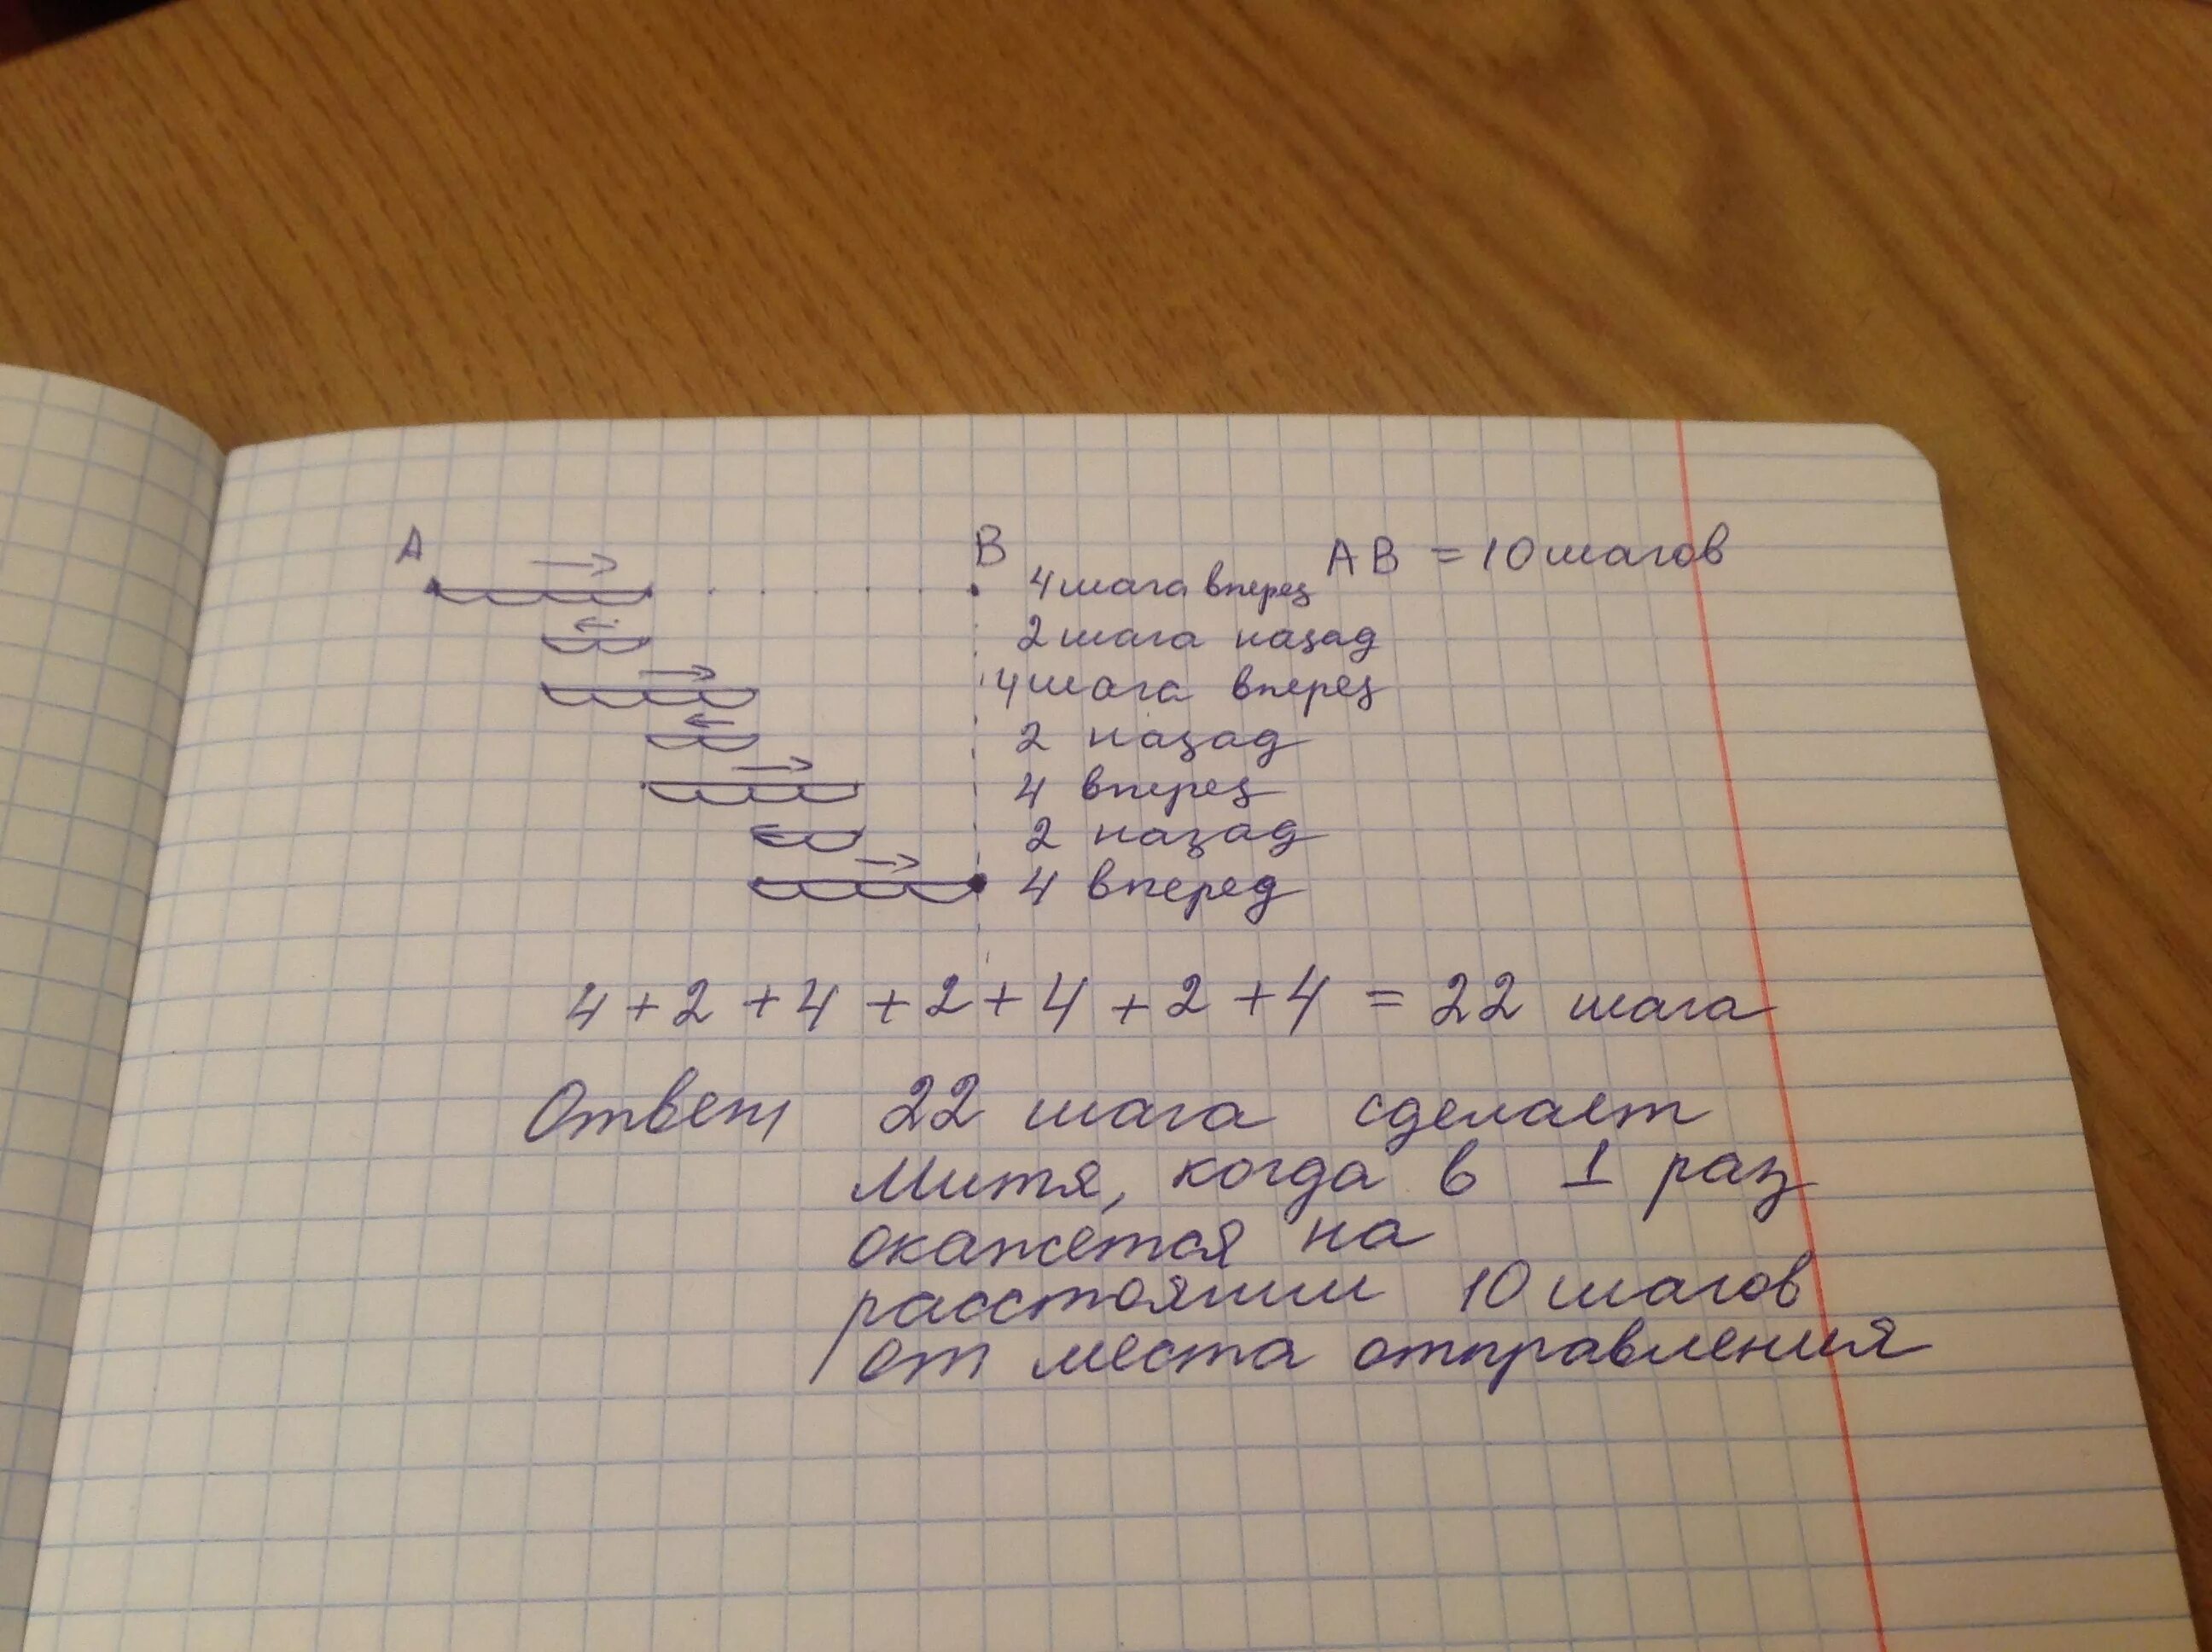 А В АВ = 10 шагов
4 шага вперед
2 шага назад
4 шага вперед
2 назад
4 вперед
2 назад
4 вперед
4 + 2 + 4 + 2 + 4 + 2 + 4 = 22 шага
Ответ 22 шага сделает
Митя, когда в 1 раз
окажется на
расстоянии 10 шагов
от места отправления